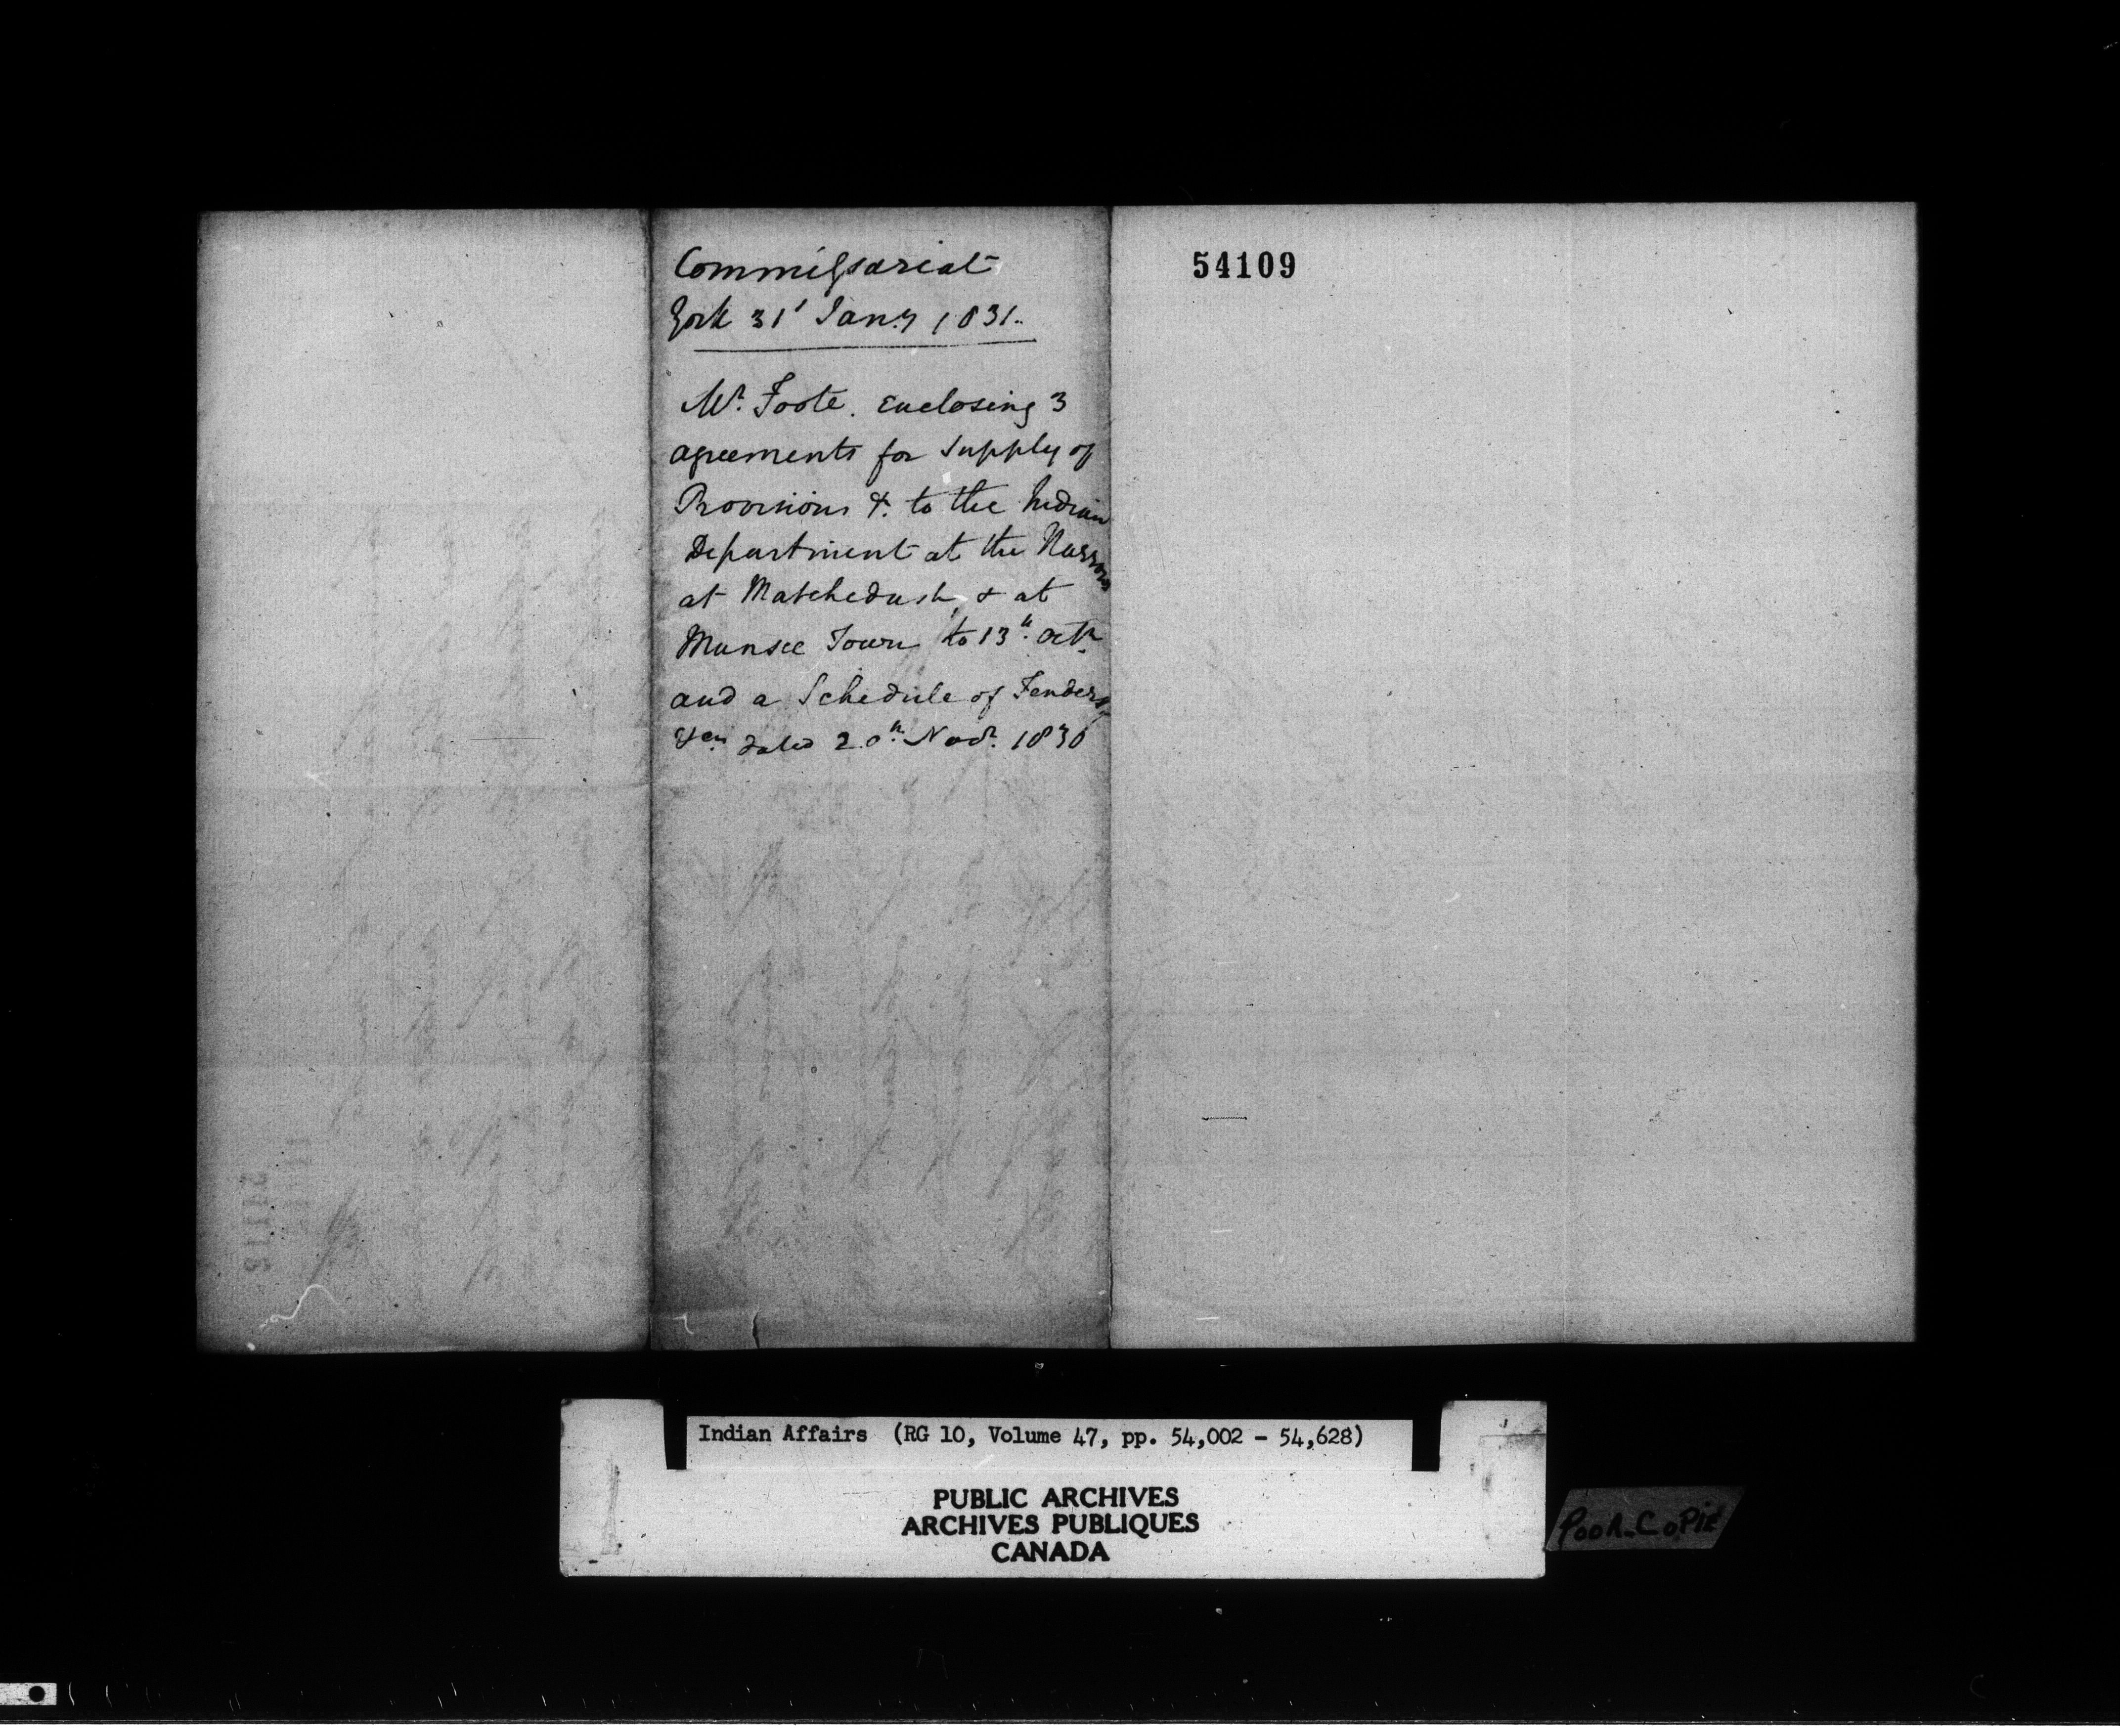 Commissariat
York 31' Jany 1831.
Mr. Foote. Enclosing 3
agreements for Supply of
Provisions &. to the Indian
Department at the Narrows
at Matchedash, & at
Munsee Town to 13th. Octr
and a Schedule of Tenders
dated 20th. Novr. 1830
54109
Indian Affairs (RG 10, Volume 47, pp. 54,002 - 54,628)
PUBLIC ARCHIVES
ARCHIVES PUBLIQUES
CANADA
POOR COPIE